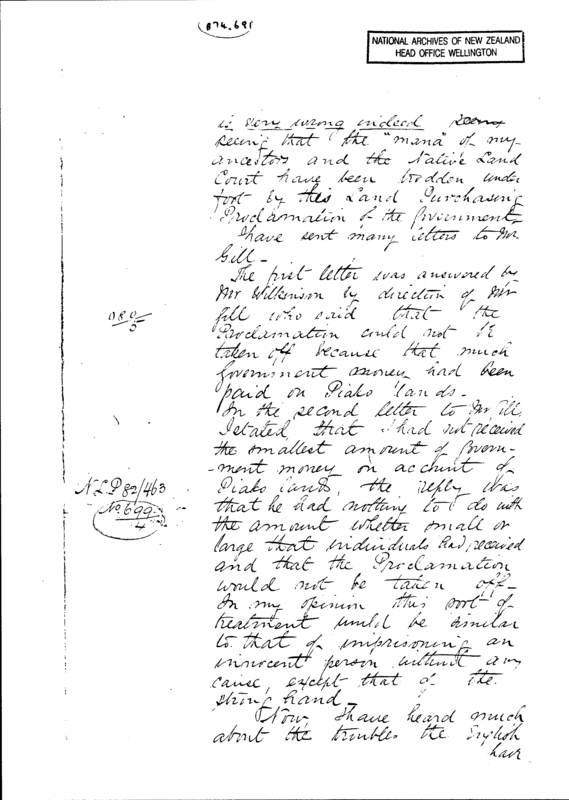 874.691
NATIONAL ARCHIVES OF NEW ZEALAND
HEAD OFFICE WELLINGTON
is very wrong indeed
seeing that the "mana" of my
ancestors and the Native Land
Court have been trodden under
foot by this Land Purchasing
Proclamation of the Government.
I have sent many letters to Mr
Gill -
The first letter was answered by
Mr Wilkinson by direction of Mr
Gill who said that the
Proclamation could not be
taken off because that much
Government money had been
paid on Piako lands -
In the second letter to Mr Gill,
I stated that I had not received
the smallest amount of Govern-
-ment money on account of
Piako lands, the reply was
that he had nothing to do with
the amount whether small or
large that individuals had received
and that the Proclamation
would not be taken off -
In my opinion this sort of
treatment would be similar
to that of imprisoning an
innocent person without any
cause, except that of the
strong hand -
Now, I have heard much
about the troubles the English
have
N L P 82/463
No 699
4